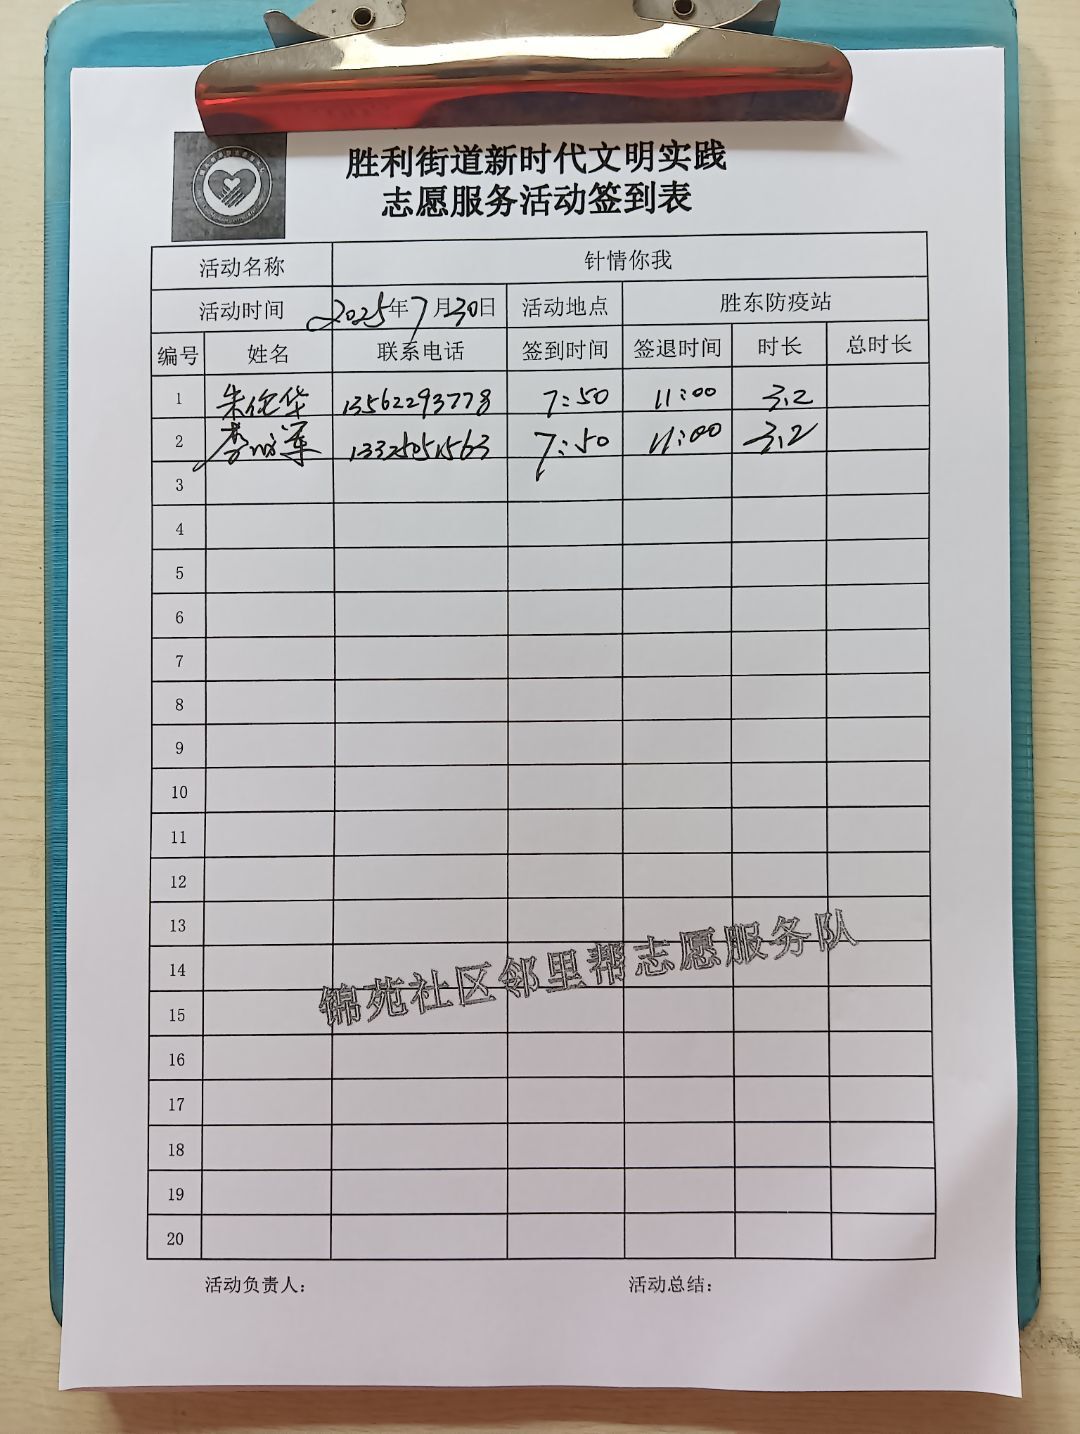 胜利街道新时代文明实践
志愿服务活动签到表
活动名称 针情你我
活动时间 2025年7月30日 活动地点 胜东防疫站
编号 姓名 联系电话 签到时间 签退时间 时长 总时长
1 朱伦华 13562293778 7:50 11:00 3.2
2 李 军 13325051563 7:50 11:00 3.2
3
4
5
6
7
8
9
10
11
12
13
14
15
16
17
18
19
20
锦苑社区邻里帮志愿服务队
活动负责人： 活动总结：